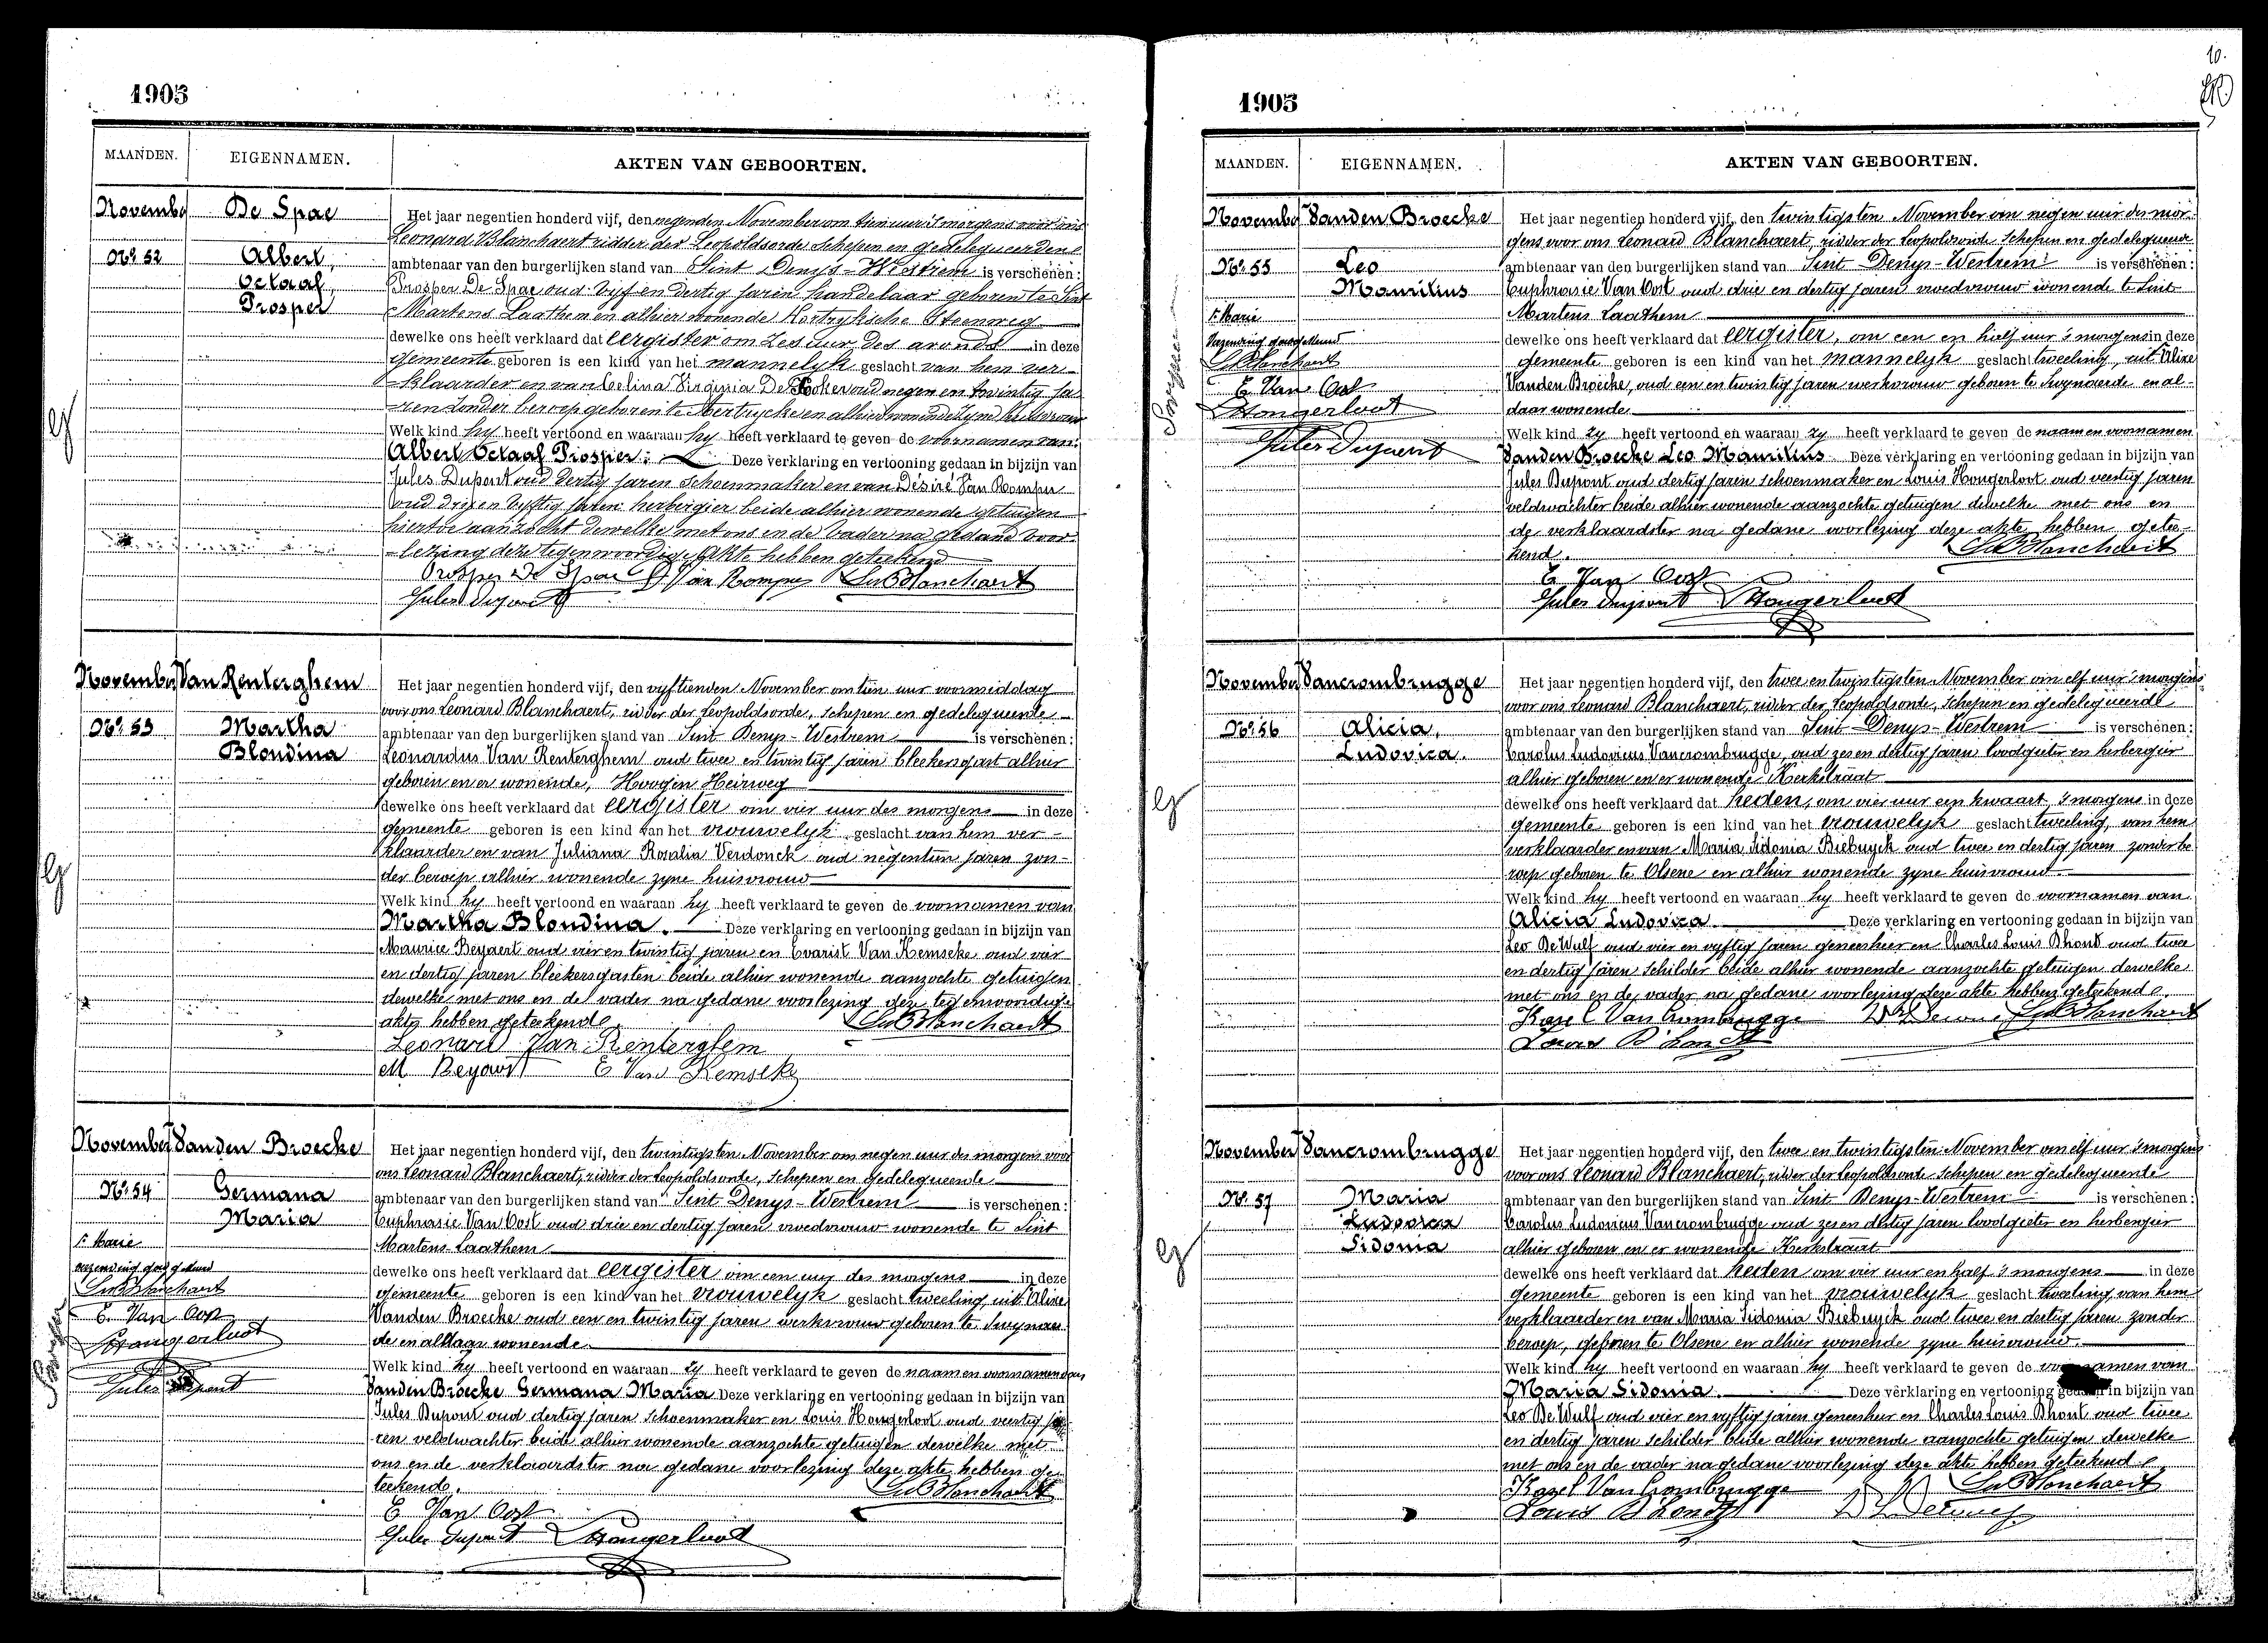 1905
MAANDEN.
EIGENNAMEN.
AKTEN VAN GEBOORTEN.
Novembe
De Spae
Nº 52
Albert,
Octaaf,
Prosper
Het jaar negentien honderd vijf, den negenden November om tien uur 's morgens voor ons
Leonard Blanchaert ridder der Leopoldsorde Schepen en gedelegueerden
ambtenaar van den burgerlijken stand van Sint Denys-Westrem is verschenen:
Prosper De Spae oud vyf en dertig jaren handelaar geboren te Sint
Martens Laathem en alhier wonende Kortryksche Steenweg
dewelke ons heeft verklaard dat eergister om zes uur des avonds in deze
gemeente geboren is een kind van het mannelyk geslacht van hem ver-
klaarder en van Celina Virginia De oud negen en twintig ja-
ren zonder beroep geboren te Aertrycke en alhier wonende zyne huisvrouw
Welk kind hy heeft vertoond en waaraan hy heeft verklaard te geven de voornamen van:
Albert Octaaf Prosper: Deze verklaring en vertooning gedaan in bijzijn van
Jules Dupont oud dertig jaren schoenmaker en van Désiré Van Rompu
oud drij en vyftig jaren herbergier beide alhier wonende getuigen
hiertoe aanzocht dewelke met ons en de vader na gedane voor-
lezing deze tegenwoordige akte hebben geteekend
Prosper De Spae D Van Rompu Ld Blanchaert
Jules Dupont
November
Van Renterghem
Nº 53
Martha
Blondina
Het jaar negentien honderd vijf, den vyftienden November om tien uur voormiddag
voor ons Leonard Blanchaert, ridder der Leopoldsorde, Schepen en gedelegueerde
ambtenaar van den burgerlijken stand van Sint Denys-Westrem is verschenen:
Leonardus Van Renterghem oud twee en twintig jaren bleekersgast alhier
geboren en er wonende, Hoogen Heirweg
dewelke ons heeft verklaard dat eergister om vier uur des morgens in deze
gemeente geboren is een kind van het vrouwelyk geslacht van hem ver-
klaarder en van Juliana Rosalia Verdonck oud negentien jaren zon-
der beroep alhier wonende zyne huisvrouw
Welk kind hy heeft vertoond en waaraan hy heeft verklaard te geven de voornamen van
Martha Blondina. Deze verklaring en vertooning gedaan in bijzijn van
Maurice Beyaert oud vier en twintig jaren en Evarist Van Kemseke oud vier
en dertig jaren bleekersgasten beide alhier wonende aanzochte getuigen
dewelke met ons en de vader na gedane voorlezing deze tegenwoordige
akte hebben geteekend
Ld Blanchaert
Leonard Van Renterghem
M Beyaert E Van Kemseke
November
Vanden Broecke
Nº 54
Germana
Maria
Het jaar negentien honderd vijf, den twintigsten November om negen uur des morgens voor
ons Leonard Blanchaert, ridder der Leopoldsorde, Schepen en gedelegueerde
ambtenaar van den burgerlijken stand van Sint Denys-Westrem is verschenen:
Euphrasie Van Oost oud drie en dertig jaren vroedvrouw wonende te Sint
Martens-Laathem
dewelke ons heeft verklaard dat eergister om een uur des morgens in deze
gemeente geboren is een kind van het vrouwelyk geslacht tweeling, uit Alixe
Vanden Broecke oud een en twintig jaren werkvrouw geboren te Swynaer
de en aldaar wonende.
Welk kind zy heeft vertoond en waaraan zy heeft verklaard te geven de naam en voornamen van
Vanden Broecke Germana Maria Deze verklaring en vertooning gedaan in bijzijn van
Jules Dupont oud dertig jaren schoenmaker en Louis Hongerloot oud veertig ja-
ren veldwachter beide alhier wonende aanzochte getuigen dewelke met
ons en de verklaardster na gedane voorlezing deze akte hebben ge-
teekend.
Ld Blanchaert
E Van Oost
Jules Dupont LHongerloot
Marie
Ld Blanchaert
E. Van Oost
LHongerloot
Jules Dupont
10.
1905
MAANDEN.
EIGENNAMEN.
AKTEN VAN GEBOORTEN.
November
Vanden Broecke
Nº 55
Leo
Mauritius
Marie
Ld Blanchaert
E. Van Oost
LHongerloot
Jules Dupont
Het jaar negentien honderd vijf, den twintigsten November om negen uur des mor-
gens voor ons Leonard Blanchaert, ridder der Leopoldsorde Schepen en gedelegueerde
ambtenaar van den burgerlijken stand van Sint Denys-Westrem is verschenen:
Euphrasie Van Oost oud drie en dertig jaren vroedvrouw wonende te Sint
Martens Laathem
dewelke ons heeft verklaard dat eergister, om een en half uur 's morgens in deze
gemeente geboren is een kind van het mannelyk geslacht tweeling, uit Alixe
Vanden Broecke, oud een en twintig jaren werkvrouw geboren te Swynaerde en al-
daar wonende
Welk kind zy heeft vertoond en waaraan zy heeft verklaard te geven de naam en voornamen
Vanden Broecke Leo Mauritius Deze verklaring en vertooning gedaan in bijzijn van
Jules Dupont oud dertig jaren schoenmaker en Louis Hongerloot oud veertig jaren
veldwachter beide alhier wonende aanzochte getuigen dewelke met ons en
de verklaardster na gedane voorlezing deze akte hebben getee-
kend.
Ld Blanchaert
E Van Oost
Jules Dupont LHongerloot
November
Vancrombrugge
Nº 56
Alicia,
Ludovica.
Het jaar negentien honderd vijf, den twee en twintigsten November om elf uur 's morgens
voor ons Leonard Blanchaert, ridder der Leopoldsorde, Schepen en gedelegueerde
ambtenaar van den burgerlijken stand van Sint-Denys-Westrem is verschenen:
Carolus Ludovicus Vancrombrugge, oud zes en dertig jaren loodgieter en herbergier
alhier geboren en er wonende Kerkstraat
dewelke ons heeft verklaard dat heden, om vier uur een kwaart 's morgens in deze
gemeente geboren is een kind van het vrouwelyk geslacht tweeling, van hem
verklaarder en van Maria Sidonia Biebuyck oud twee en dertig jaren zonder be
roep geboren te Olsene en alhier wonende zyne huisvrouw
Welk kind hy heeft vertoond en waaraan hy heeft verklaard te geven de voornamen van
Alicia Ludovica Deze verklaring en vertooning gedaan in bijzijn van
Leo De Wulf oud vier en vyftig jaren geneesheer en Charles Louis Dhont oud twee
en dertig jaren schilder beide alhier wonende aanzochte getuigen dewelke
met ons en de vader na gedane voorlezing deze akte hebben geteekend.
Karel Vancrombrugge Ld Blanchaert
Louis D'hondt
November
Vancrombrugge
Nº 57
Maria
Ludovica
Sidonia
Het jaar negentien honderd vijf, den twee en twintigsten November om elf uur 's morgens
voor ons Leonard Blanchaert, ridder der Leopoldsorde Schepen en gedelegueerde
ambtenaar van den burgerlijken stand van Sint Denys-Westrem is verschenen:
Carolus Ludovicus Vancrombrugge oud zes en dertig jaren loodgieter en herbergier
alhier geboren en er wonende Kerkstraat
dewelke ons heeft verklaard dat heden om vier uur en half 's morgens in deze
gemeente geboren is een kind van het vrouwelyk geslacht tweeling van hem
verklaarder en van Maria Sidonia Biebuyck oud twee en dertig jaren zonder
beroep, geboren te Olsene en alhier wonende zyne huisvrouw
Welk kind hy heeft vertoond en waaraan hy heeft verklaard te geven de voornamen van
Maria Sidonia. Deze verklaring en vertooning gedaan in bijzijn van
Leo De Wulf oud vier en vyftig jaren geneesheer en Charles Louis Dhont oud twee
en dertig jaren schilder beide alhier wonende aanzochte getuigen dewelke
met ons en de vader na gedane voorlezing deze akte hebben geteekend
Karel Vancrombrugge Ld Blanchaert
Louis D'hondt